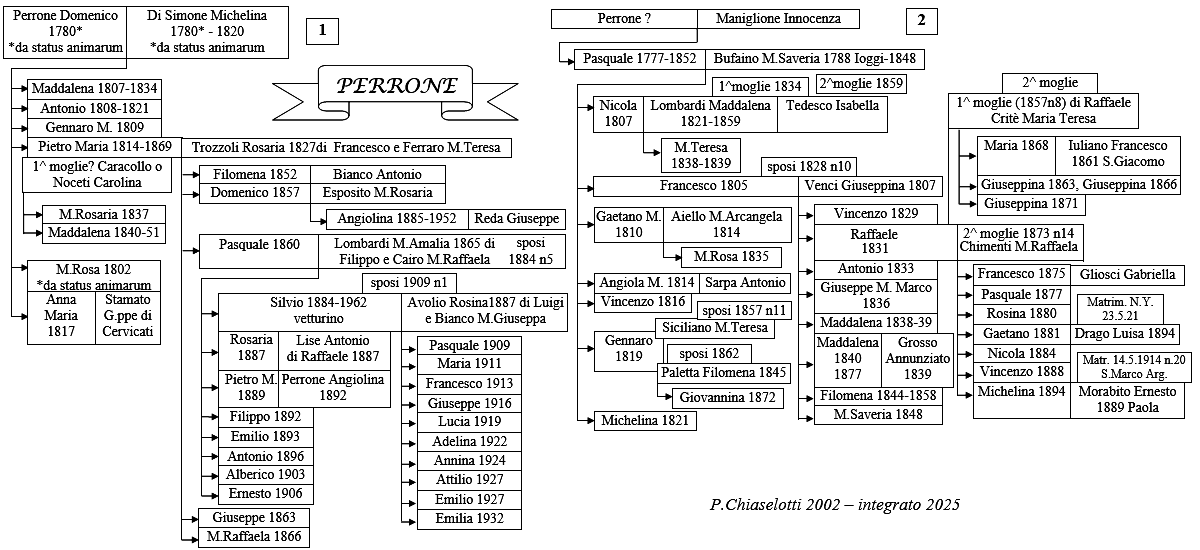 Perrone Domenico
1780*
*da status animarum
Di Simone Michelina
1780* - 1820
*da status animarum
1
PERRONE
Maddalena 1807-1834
Antonio 1808-1821
Gennaro M. 1809
Pietro Maria 1814-1869
Trozzoli Rosaria 1827di Francesco e Ferraro M.Teresa
1^ moglie? Caracollo o
Noceti Carolina
M.Rosaria 1837
Maddalena 1840-51
M.Rosa 1802
*da status animarum
Anna
Maria
1817
Stamato
G.ppe di
Cervicati
Filomena 1852
Bianco Antonio
Domenico 1857
Esposito M.Rosaria
Angiolina 1885-1952
Reda Giuseppe
Pasquale 1860
Lombardi M.Amalia 1865 di sposi
Filippo e Cairo M.Raffaela 1884 n5
sposi 1909 n1
Silvio 1884-1962
vetturino
Avolio Rosina1887 di Luigi
e Bianco M.Giuseppa
Rosaria
1887
Lise Antonio
di Raffaele 1887
Pietro M.
1889
Perrone Angiolina
1892
Filippo 1892
Emilio 1893
Antonio 1896
Alberico 1903
Ernesto 1906
Pasquale 1909
Maria 1911
Francesco 1913
Giuseppe 1916
Lucia 1919
Adelina 1922
Annina 1924
Attilio 1927
Emilio 1927
Emilia 1932
Giuseppe 1863
M.Raffaela 1866
Perrone ?
Maniglione Innocenza
2
Pasquale 1777-1852
Bufaino M.Saveria 1788 Ioggi-1848
1^moglie 1834
2^moglie 1859
Nicola
1807
Lombardi Maddalena
1821-1859
Tedesco Isabella
M.Teresa
1838-1839
sposi 1828 n10
Francesco 1805
Venci Giuseppina 1807
Gaetano M.
1810
Aiello M.Arcangela
1814
M.Rosa 1835
Angiola M. 1814
Sarpa Antonio
Vincenzo 1816
sposi 1857 n11
Siciliano M.Teresa
Gennaro
1819
sposi 1862
Paletta Filomena 1845
Giovannina 1872
Michelina 1821
Vincenzo 1829
Raffaele
1831
2^ moglie 1873 n14
Chimenti M.Raffaela
Antonio 1833
Giuseppe M. Marco
1836
Maddalena 1838-39
Maddalena
1840
1877
Grosso
Annunziato
1839
Filomena 1844-1858
M.Saveria 1848
2^ moglie
1^ moglie (1857n8) di Raffaele
Critè Maria Teresa
Maria 1868
Iuliano Francesco
1861 S.Giacomo
Giuseppina 1863, Giuseppina 1866
Giuseppina 1871
Francesco 1875
Gliosci Gabriella
Pasquale 1877
Rosina 1880
Matrim. N.Y.
23.5.21
Gaetano 1881
Drago Luisa 1894
Nicola 1884
Vincenzo 1888
Matr. 14.5.1914 n.20
S.Marco Arg.
Michelina 1894
Morabito Ernesto
1889 Paola
P.Chiaselotti 2002 – integrato 2025